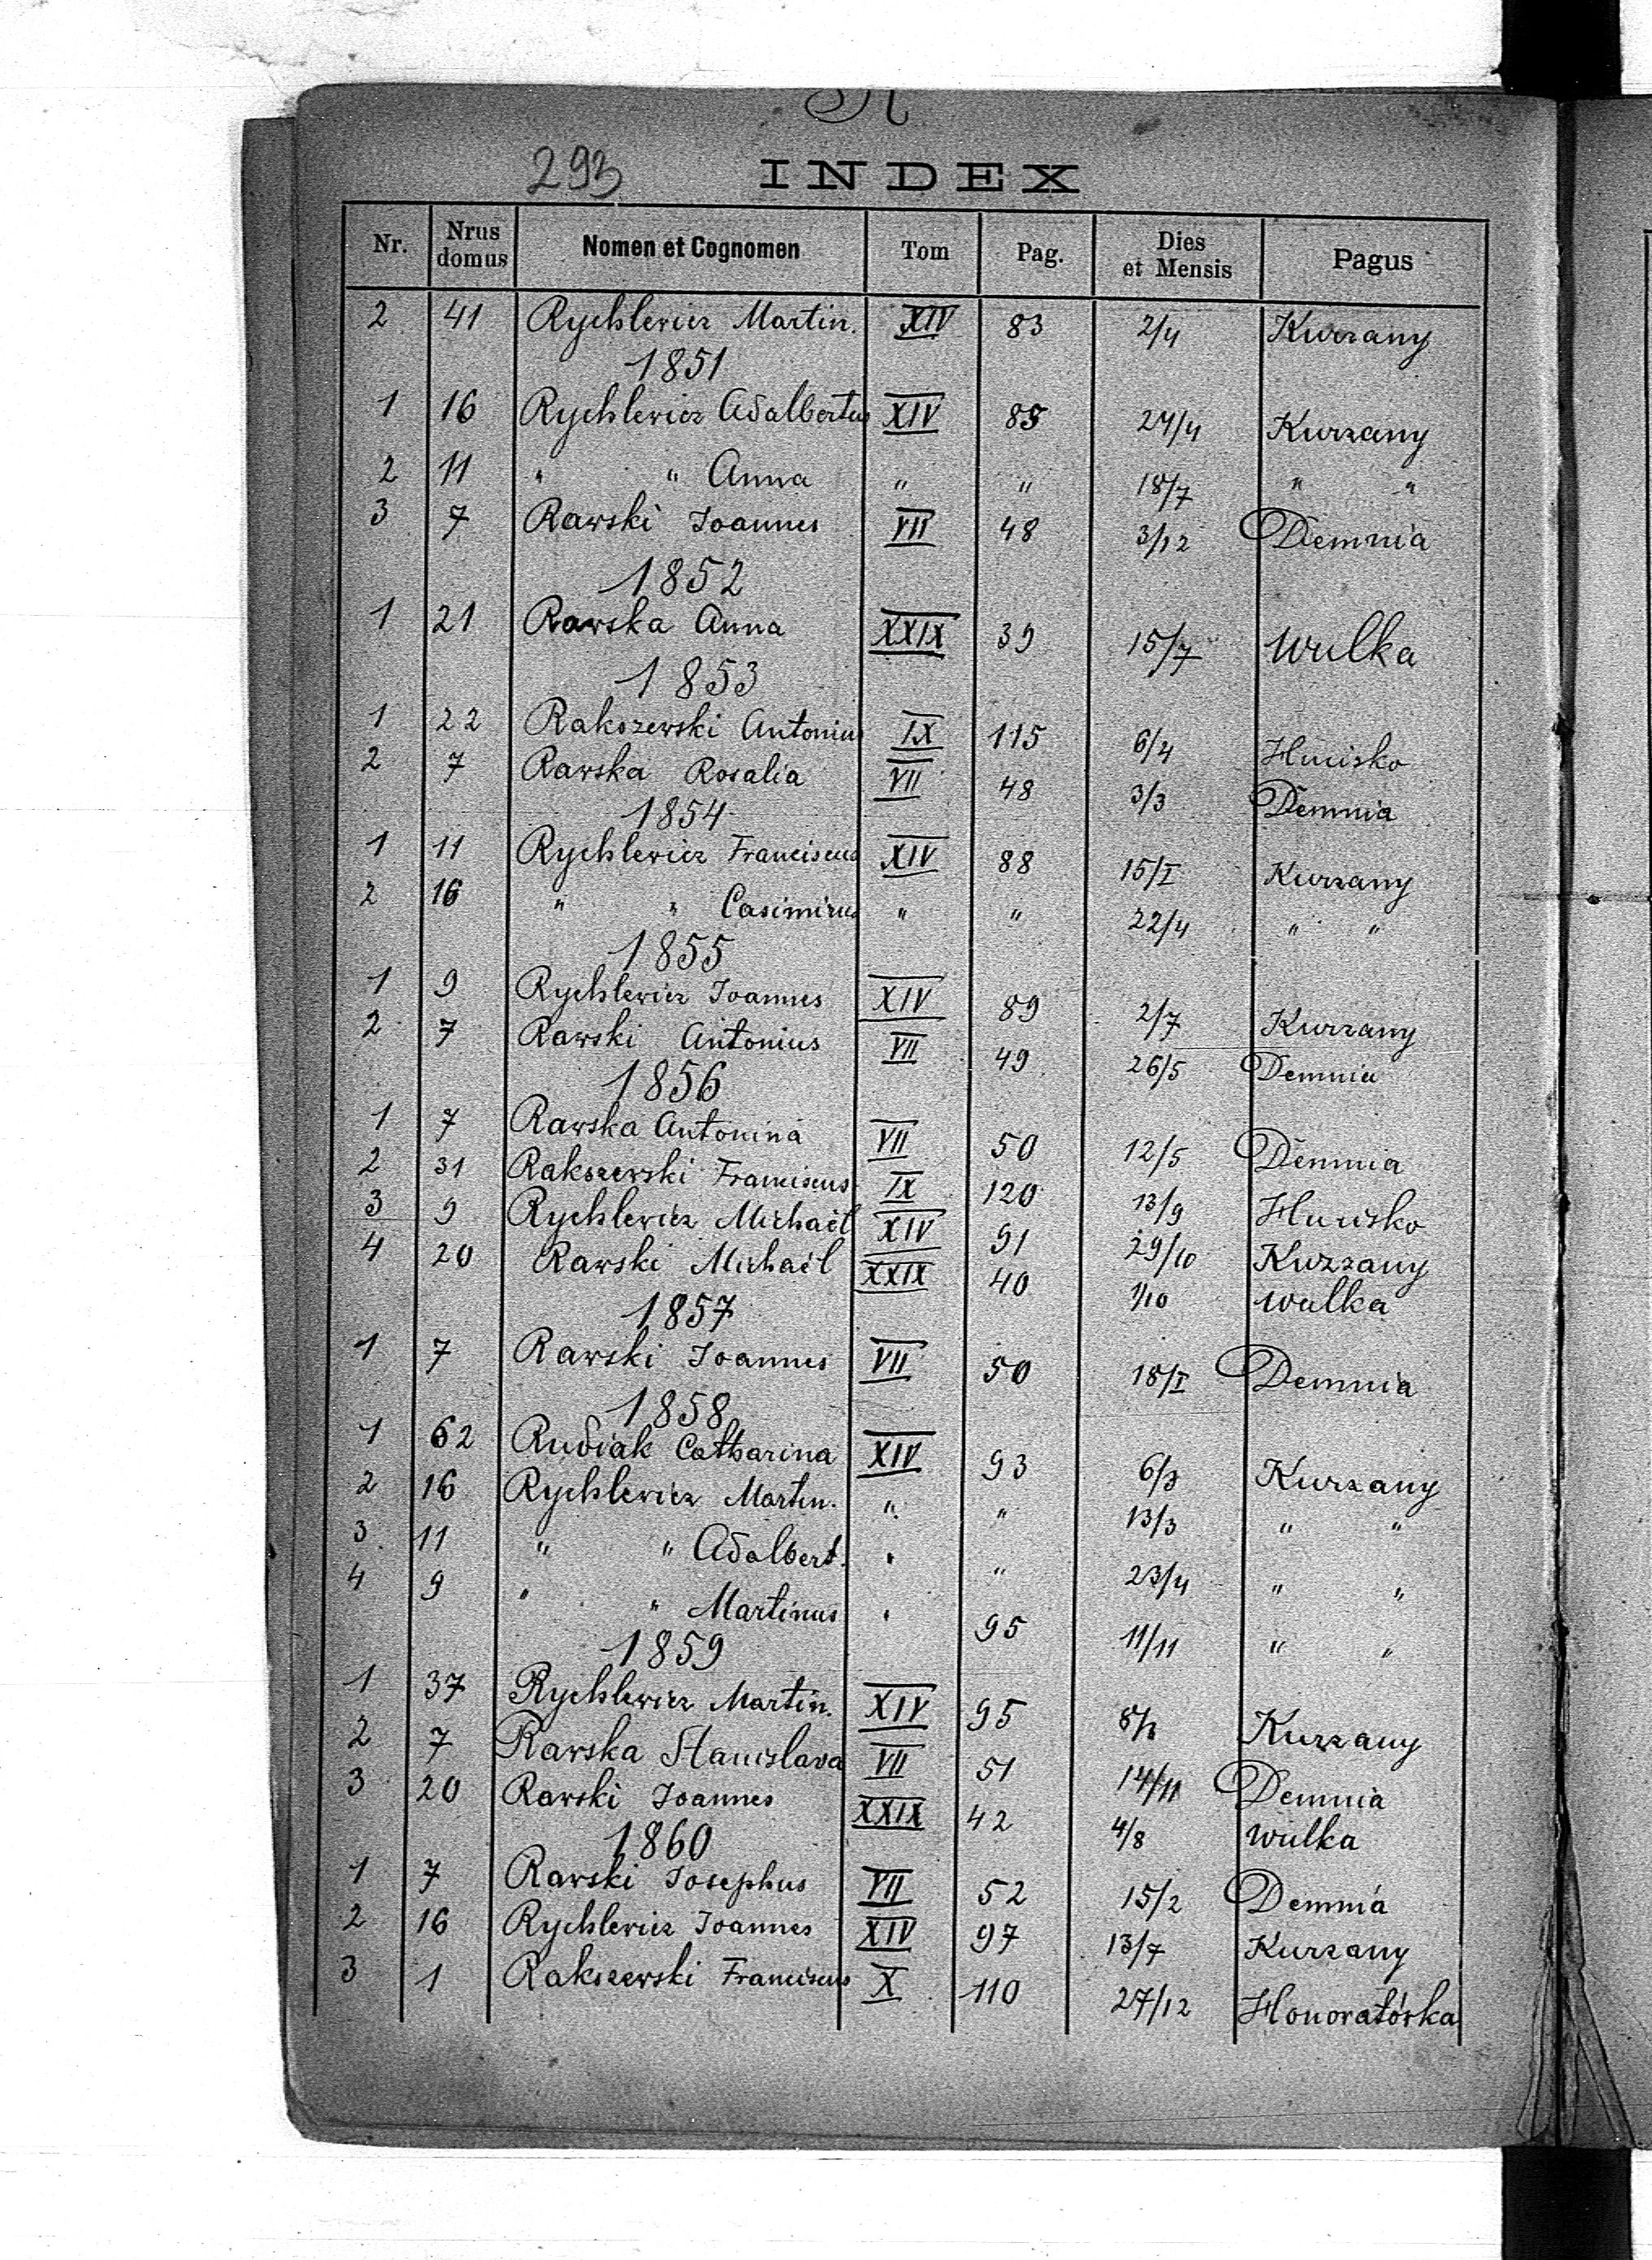 R
293 INDEX
Nr. Nrus domus Nomen et Cognomen Tom Pag. Dies et Mensis Pagus
2 41 Rychlewicz Martin. XIV 83 2/4 Kurzany
1851
1 16 Rychlewicz Adalbertus XIV 85 24/4 Kurzany
2 11 " " Anna " " 18/7 " "
3 7 Rawski Joannes VII 48 3/12 Demnia
1852
1 21 Rawska Anna XXIX 39 15/7 Wulka
1853
1 22 Rakszewski Antonius IX 115 6/4 Hucisko
2 7 Rawska Rosalia VII 48 3/3 Demnia
1854
1 11 Rychlewicz Franciscus XIV 88 15/I Kurzany
2 16 " " Casimirus " " 22/4 " "
1855
1 9 Rychlewicz Joannes XIV 89 2/7 Kurzany
2 7 Rawski Antonius VII 49 26/5 Demnia
1856
1 7 Rawska Antonina VII 50 12/5 Demnia
2 31 Rakszewski Franciscus IX 120 13/9 Hucisko
3 9 Rychlewicz Michaël XIV 91 29/10 Kurzany
4 20 Rawski Michaël XXIX 40 1/10 Wulka
1857
1 7 Rawski Joannes VII 50 18/I Demnia
1858
1 62 Rudiak Catharina XIV 93 6/3 Kurzany
2 16 Rychlewicz Martin. " " 13/3 " "
3 11 " " Adalbert. " " 23/4 " "
4 9 " " Martinus " 95 11/11 " "
1859
1 37 Rychlewicz Martin. XIV 95 Kurzany
2 7 Rawska Stanislava VII 51 14/11 Demnia
3 20 Rawski Joannes XXIX 42 4/8 Wulka
1860
1 7 Rawski Josephus VII 52 15/2 Demnia
2 16 Rychlewicz Joannes XIV 97 13/7 Kurzany
3 1 Rakszewski Franciscus X 110 27/12 Honoratówka